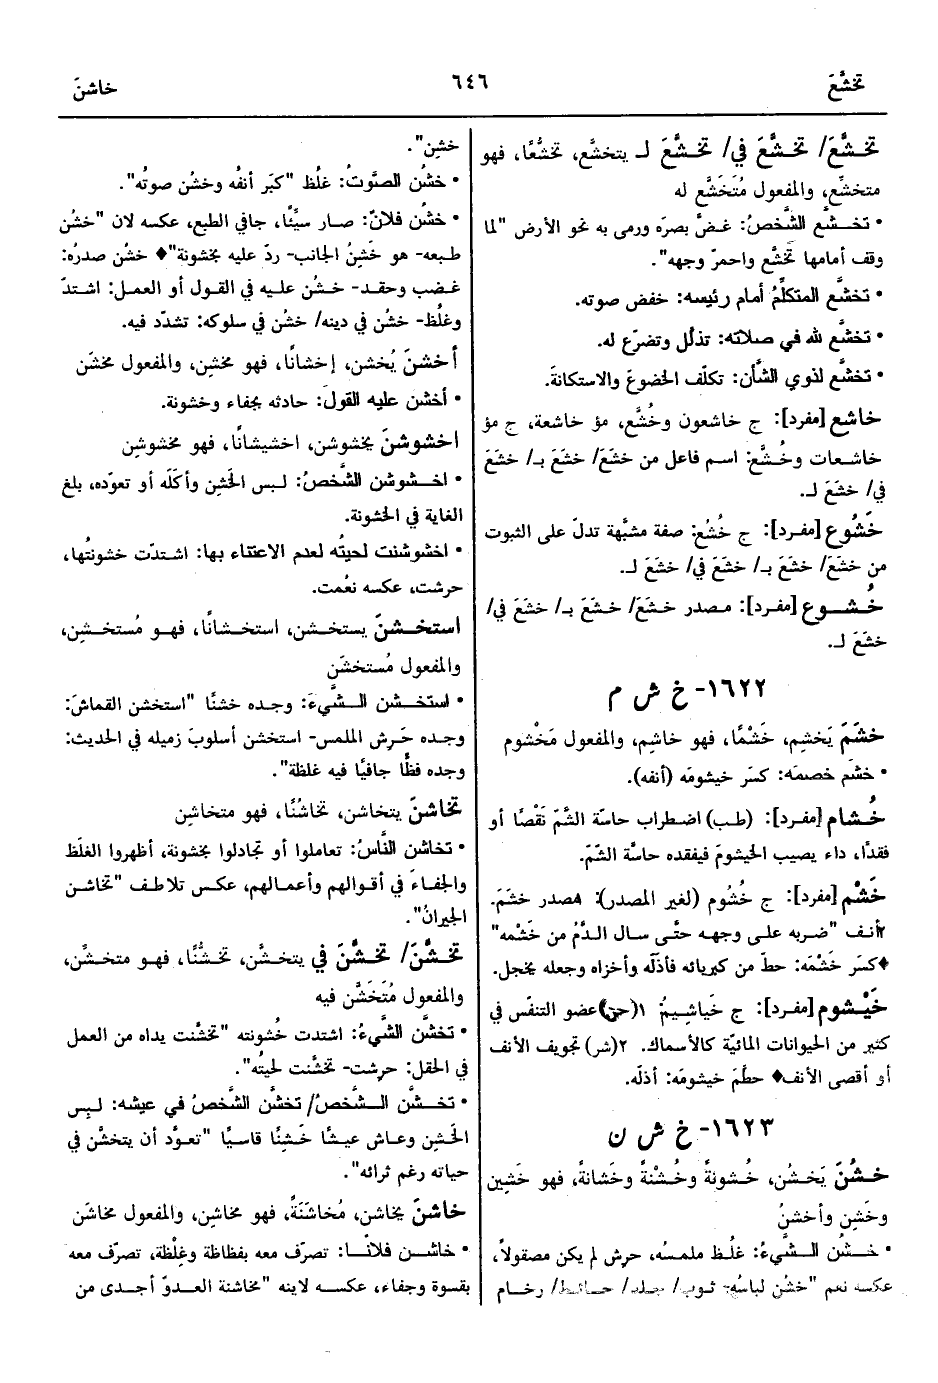 تخشَّعَ
٦٤٦
خاشنَ
تخشَّعَ/ تخشَّعَ في/ تخشَّعَ لـ يتخشَّع، تخشُّعًا، فهو
متخشِّع، والمفعول مُتَخَشَّع له
• تخشَّع الشَّخصُ: غضَّ بصرَه ورمى به نحو الأرض "لما
وقف أمامها تخشَّع واحمرّ وجهه".
• تخشَّع المتكلِّمُ أمام رئيسه: خفض صوته.
• تخشَّع لله في صلاته: تذلَّل وتضرّع له.
• تخشَّع لذوي الشَّأن: تكلّف الخضوعَ والاستكانةَ.
خاشع [مفرد]: ج خاشعون وخُشَّع، مؤ خاشعة، ج مؤ
خاشعات وخُشَّع: اسم فاعل من خشَعَ/ خشَعَ بـ/ خشَعَ
في/ خشَعَ لـ.
خَشُوع [مفرد]: ج خُشُع: صفة مشبَّهة تدلّ على الثبوت
من خشَعَ/ خشَعَ بـ/ خشَعَ في/ خشَعَ لـ.
خُشوع [مفرد]: مصدر خشَعَ/ خشَعَ بـ/ خشَعَ في/
خشَعَ لـ.
١٦٢٢- خ ش م
خشَمَ يَخشِم، خَشْمًا، فهو خاشِم، والمفعول مَخْشوم
• خشَم خصمَه: كسَر خيشومَه (أنفه).
خُشام [مفرد]: (طب) اضطراب حاسّة الشَّمّ نَقْصًا أو
فقدًا، داء يصيب الخيشومَ فيفقده حاسَّة الشَّمّ.
خَشْم [مفرد]: ج خُشُوم (لغير المصدر): ١مصدر خشَمَ.
٢أنف "ضربه على وجهه حتَّى سال الدَّمُ من خَشْمه"
♦كسَر خَشْمَه: حطّ من كبريائه فأذلّه وأخزاه وجعله يخجل.
خَيْشوم [مفرد]: ج خَياشيمُ ١(حي) عضو التنفّس في
كثير من الحيوانات المائيّة كالأسماك. ٢(شر) تجويف الأنف
أو أقصى الأنف♦ حطّمَ خيشومَه: أذلّه.
١٦٢٣- خ ش ن
خشُنَ يَخشُن، خُشونةً وخُشْنةً وخَشانةً، فهو خَشِين
وخَشِن وأخشنُ
• خشُن الشَّيءُ: غلُظ ملمسُه، حرش لم يكن مصقولاً،
عكسه نعم "خشُن لباسُه- ثوب/ جلد/ حائط/ رخام
خشِن".
• خشُن الصَّوتُ: غلُظ "كبَر أنفُه وخشُن صوتُه".
• خشُن فلانٌ: صار سيِّئًا، جافي الطبع، عكسه لان "خشُن
طبعه- هو خَشِنُ الجانب- ردّ عليه بخشونة"♦ خشُن صدرُه:
غضب وحقد- خشُن عليه في القول أو العمل: اشتدّ
وغلُظ- خشُن في دينه/ خشُن في سلوكه: تشدّد فيه.
أخشنَ يُخشن، إخشانًا، فهو مخشِن، والمفعول مخشَن
• أخشن عليه القولَ: حادثه بجفاء وخشونة.
اخشوشنَ يخشوشن، اخشيشانًا، فهو مخشوشِن
• اخشوشن الشَّخصُ: لبس الخَشِن وأكَلَه أو تعوّده، بلغ
الغاية في الخشونة.
• اخشوشنت لحيتُه لعدم الاعتناء بها: اشتدّت خشونتُها،
حرشت، عكسه نعُمت.
استخشنَ يستخشن، استخشانًا، فهو مُستخشِن،
والمفعول مُستخشَن
• استخشن الشَّيءَ: وجده خشنًا "استخشن القماشَ:
وجده حَرِش الملمس- استخشن أسلوبَ زميله في الحديث:
وجده فظًّا جافيًا فيه غلظة".
تخاشنَ يتخاشن، تخاشُنًا، فهو متخاشِن
• تخاشن النَّاسُ: تعاملوا أو تجادلوا بخشونة، أظهروا الغلظَ
والجفاءَ في أقوالهم وأعمالهم، عكس تلاطف "تخاشن
الجيرانُ".
تخشَّنَ/ تخشَّنَ في يتخشَّن، تخشُّنًا، فهو متخشِّن،
والمفعول مُتَخَشَّن فيه
• تخشَّن الشَّيءُ: اشتدت خُشونته "تخشَّنت يداه من العمل
في الحقل: حرشت- تخشَّنت لحيتُه".
• تخشَّن الشَّخصُ/ تخشَّن الشَّخصُ في عيشه: لبِس
الخَشِن وعاش عيشًا خَشِنًا قاسيًا "تعوَّد أن يتخشَّن في
حياته رغم ثرائه".
خاشنَ يخاشن، مُخاشَنَةً، فهو مخاشِن، والمفعول مخاشَن
• خاشن فلانًا: تصرّف معه بفظاظة وغِلْظة، تصرّف معه
بقسوة وجفاء، عكسه لاينه "مخاشنة العدوّ أجدى من